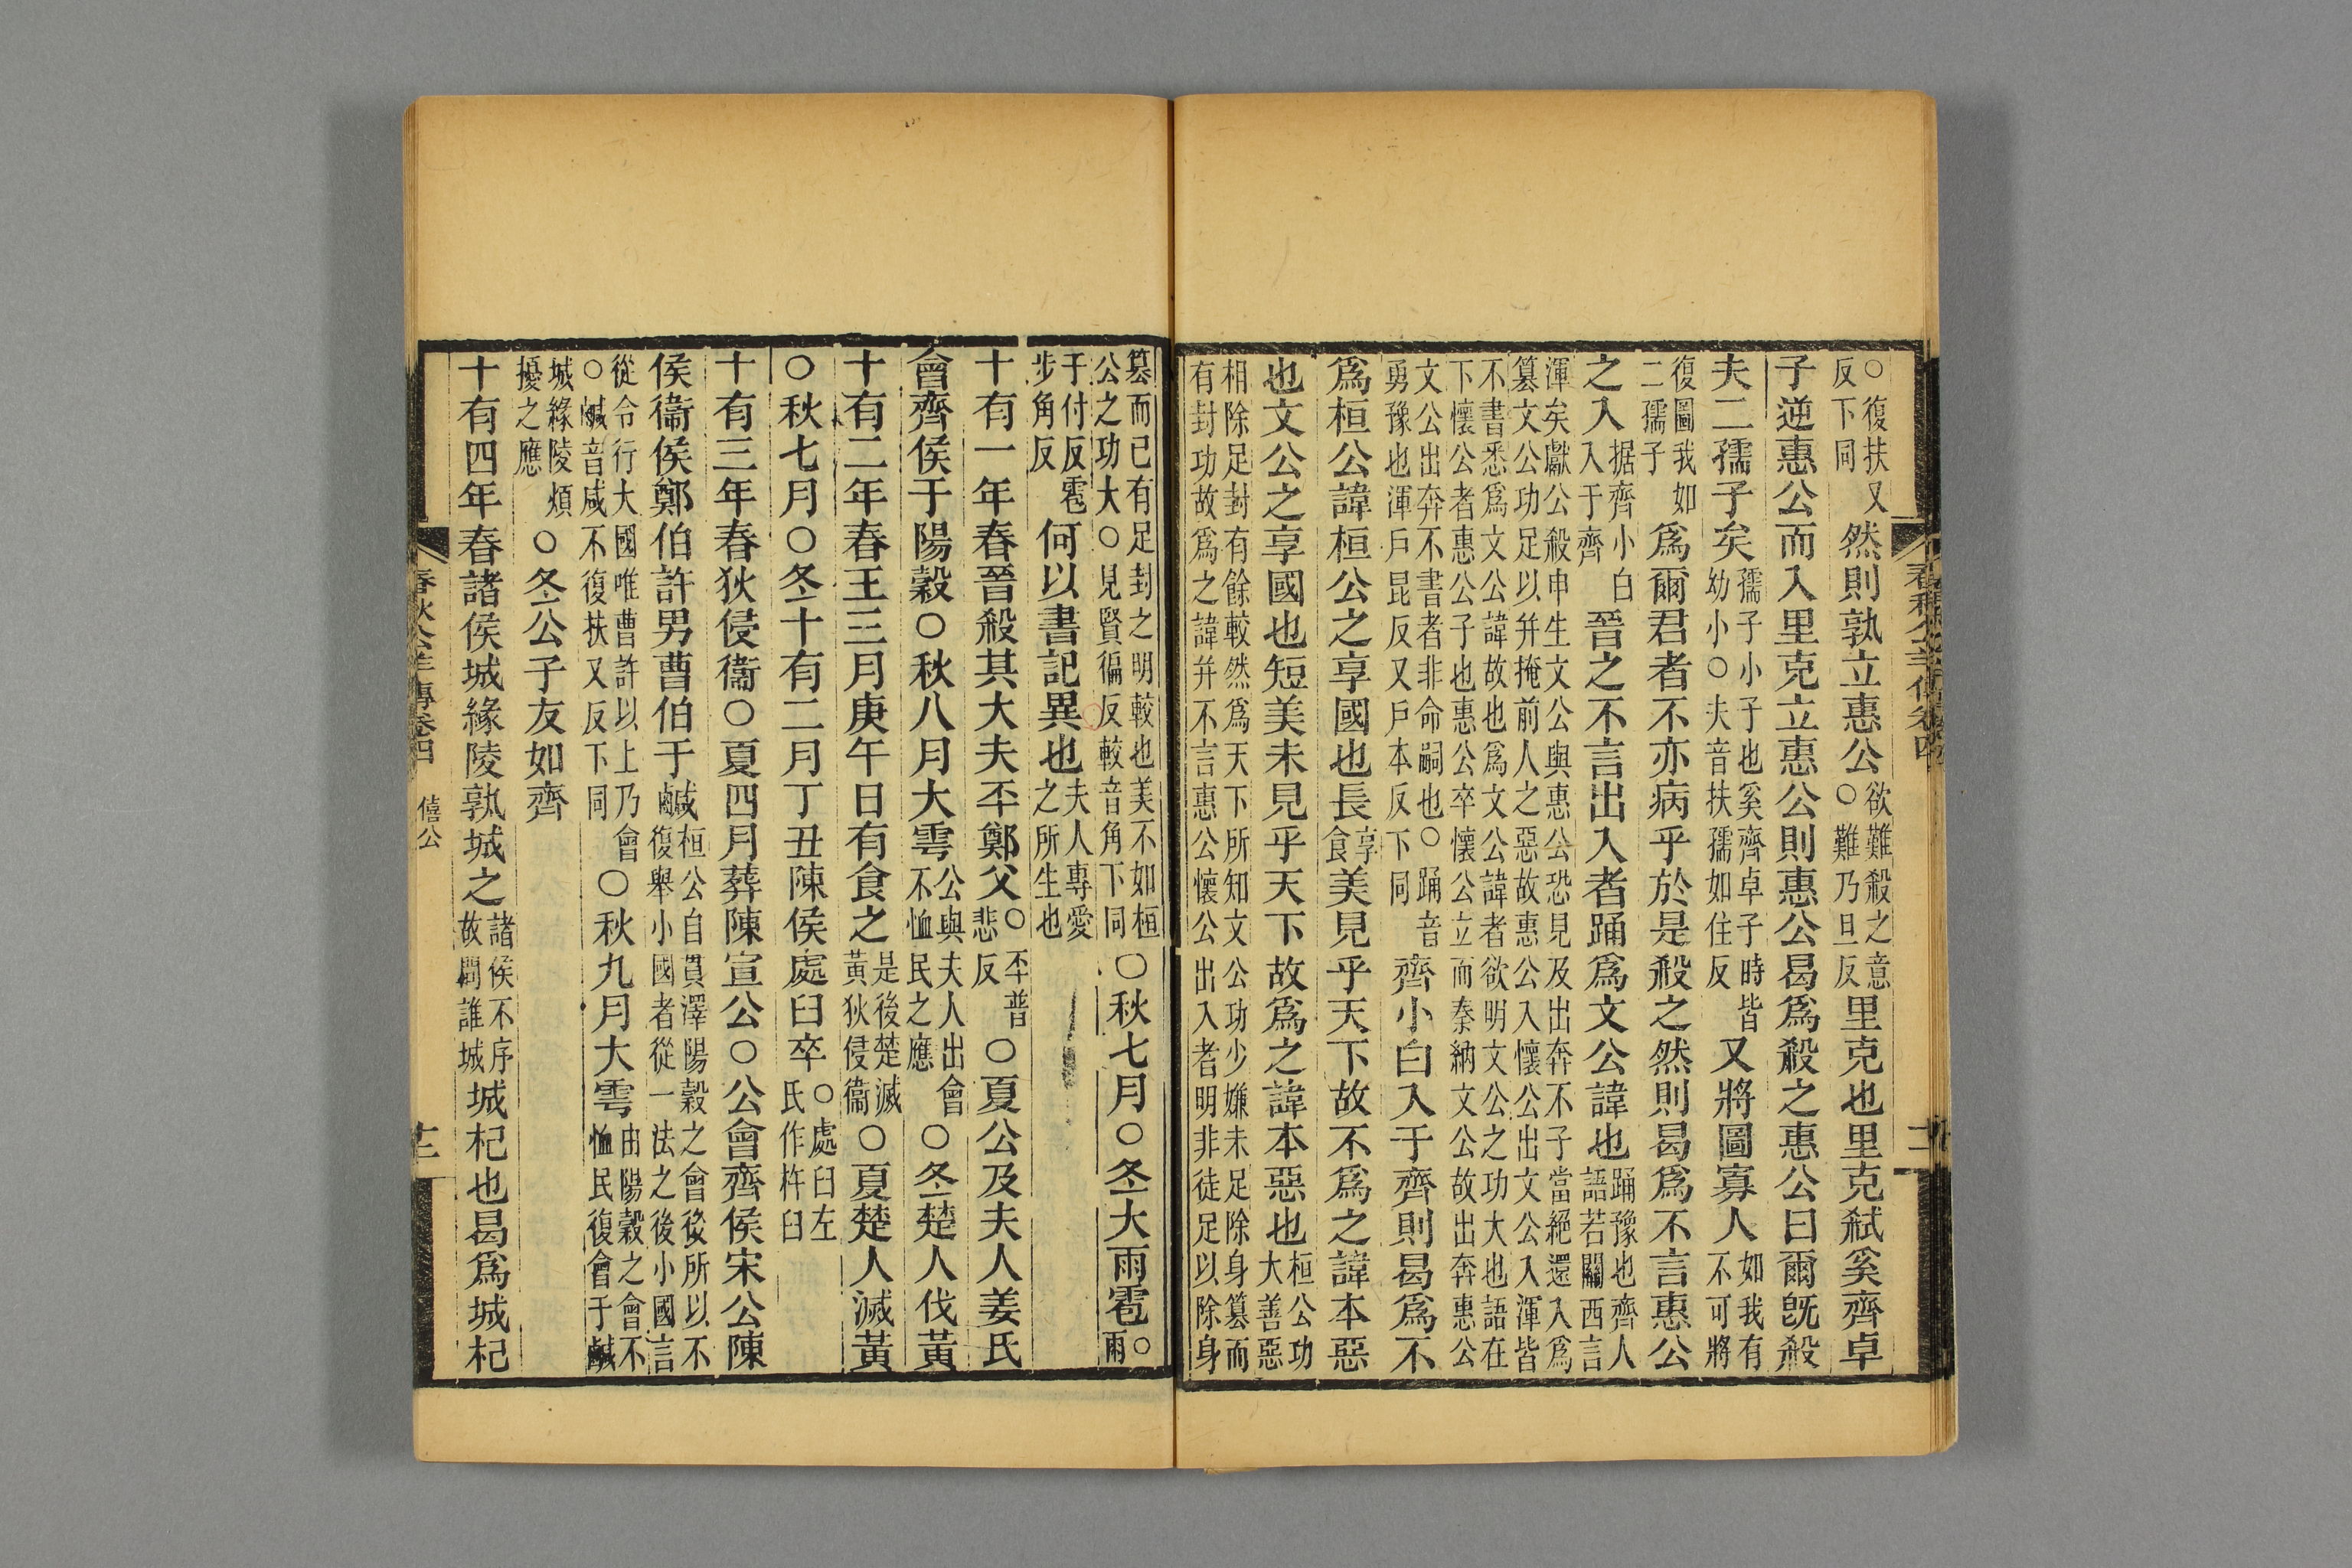 ○復扶又
反下同
然則孰立惠公
欲難殺之意
○難乃旦反
里克也里克弑奚齊卓
子逆惠公而入里克立惠公則惠公曷爲殺之惠公曰爾旣殺
夫二孺子矣
孺子小子也奚齊卓子時皆
幼小○夫音扶孺如住反
又將圖寡人
如我有
不可將
復圖我如
二孺子
爲爾君者不亦病乎於是殺之然則曷爲不言惠公
之入
据齊小白
入于齊
晉之不言出入者踊爲文公諱也
踊豫也齊人
語若關西言
渾矣獻公殺申生文公與惠公恐見及出奔不子當絕還入爲
篡文公功足以并掩前人之惡故惠公入懷公出文公入渾皆
不書悉爲文公諱故也爲文公諱者欲明文公之功大也語在
下懷公者惠公子也惠公卒懷公立而秦納文公故出奔惠公
文公出奔不書者非命嗣也○踊音
勇豫也渾戶昆反又戶本反下同
齊小白入于齊則曷爲不
爲桓公諱桓公之享國也長
享
食
美見乎天下故不爲之諱本惡
也文公之享國也短美未見乎天下故爲之諱本惡也
桓公功
大善惡
相除足封有餘較然爲天下所知文公功少嫌未足除身篡而
有封功故爲之諱并不言惠公懷公出入者明非徒足以除身
篡而已有足封之明較也美不如桓
公之功大○見賢徧反較音角下同
○秋七月○冬大雨雹
○
雨
于付反雹
步角反
何以書記異也
夫人專愛
之所生也
十有一年春晉殺其大夫丕鄭父
○丕普
悲反
○夏公及夫人姜氏
會齊侯于陽穀○秋八月大雩
公與夫人出會
不恤民之應
○冬楚人伐黃
十有二年春王三月庚午日有食之
是後楚滅
黃狄侵衞
○夏楚人滅黃
○秋七月○冬十有二月丁丑陳侯處臼卒
○處臼左
氏作杵臼
十有三年春狄侵衞○夏四月葬陳宣公○公會齊侯宋公陳
侯衞侯鄭伯許男曹伯于鹹
桓公自貫澤陽穀之會後所以不
復舉小國者從一法之後小國言
從令行大國唯曹許以上乃會
○鹹音咸不復扶又反下同
○秋九月大雩
由陽穀之會不
恤民復會于鹹
城緣陵煩
擾之應
○冬公子友如齊
十有四年春諸侯城緣陵孰城之
諸侯不序
故問誰城
城杞也曷爲城杞
春秋公羊傳卷四
僖公
十二